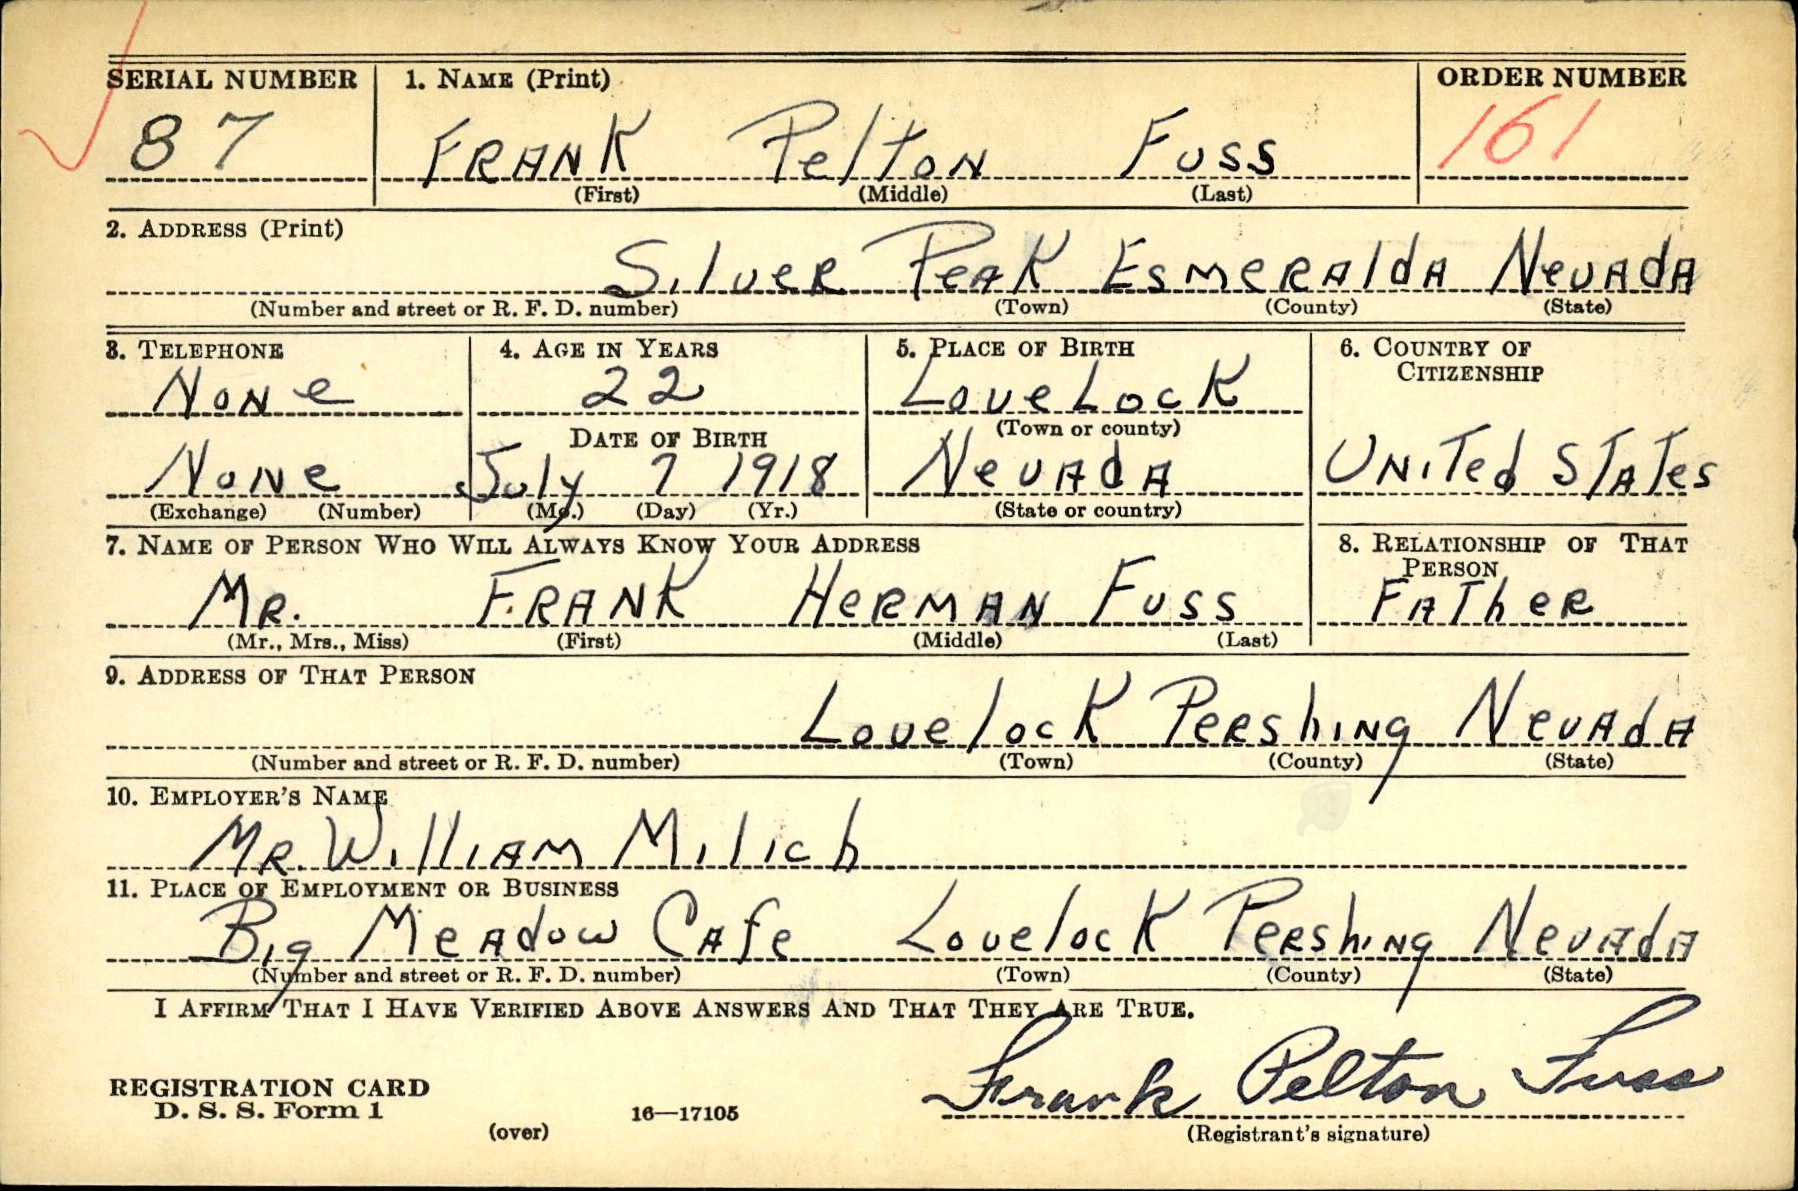 SERIAL NUMBER 1. NAME (Print) ORDER NUMBER
87 FRANK Pelton Fuss 161
(First) (Middle) (Last)
2. ADDRESS (Print)
Silver Peak Esmeralda Nevada
(Number and street or R. F. D. number) (Town) (County) (State)
3. TELEPHONE 4. AGE IN YEARS 5. PLACE OF BIRTH 6. COUNTRY OF
CITIZENSHIP
None 22 Lovelock
DATE OF BIRTH (Town or county)
None July 7 1918 Nevada United States
(Exchange) (Number) (Mo.) (Day) (Yr.) (State or country)
7. NAME OF PERSON WHO WILL ALWAYS KNOW YOUR ADDRESS 8. RELATIONSHIP OF THAT
PERSON
Mr. FRANK HERMAN Fuss Father
(Mr., Mrs., Miss) (First) (Middle) (Last)
9. ADDRESS OF THAT PERSON
Lovelock Pershing Nevada
(Number and street or R. F. D. number) (Town) (County) (State)
10. EMPLOYER'S NAME
Mr. William Milich
11. PLACE OF EMPLOYMENT OR BUSINESS
Big Meadow Cafe Lovelock Pershing Nevada
(Number and street or R. F. D. number) (Town) (County) (State)
I AFFIRM THAT I HAVE VERIFIED ABOVE ANSWERS AND THAT THEY ARE TRUE.
Frank Pelton Fuss
REGISTRATION CARD
D. S. S. Form 1 16—17105
(over) (Registrant's signature)